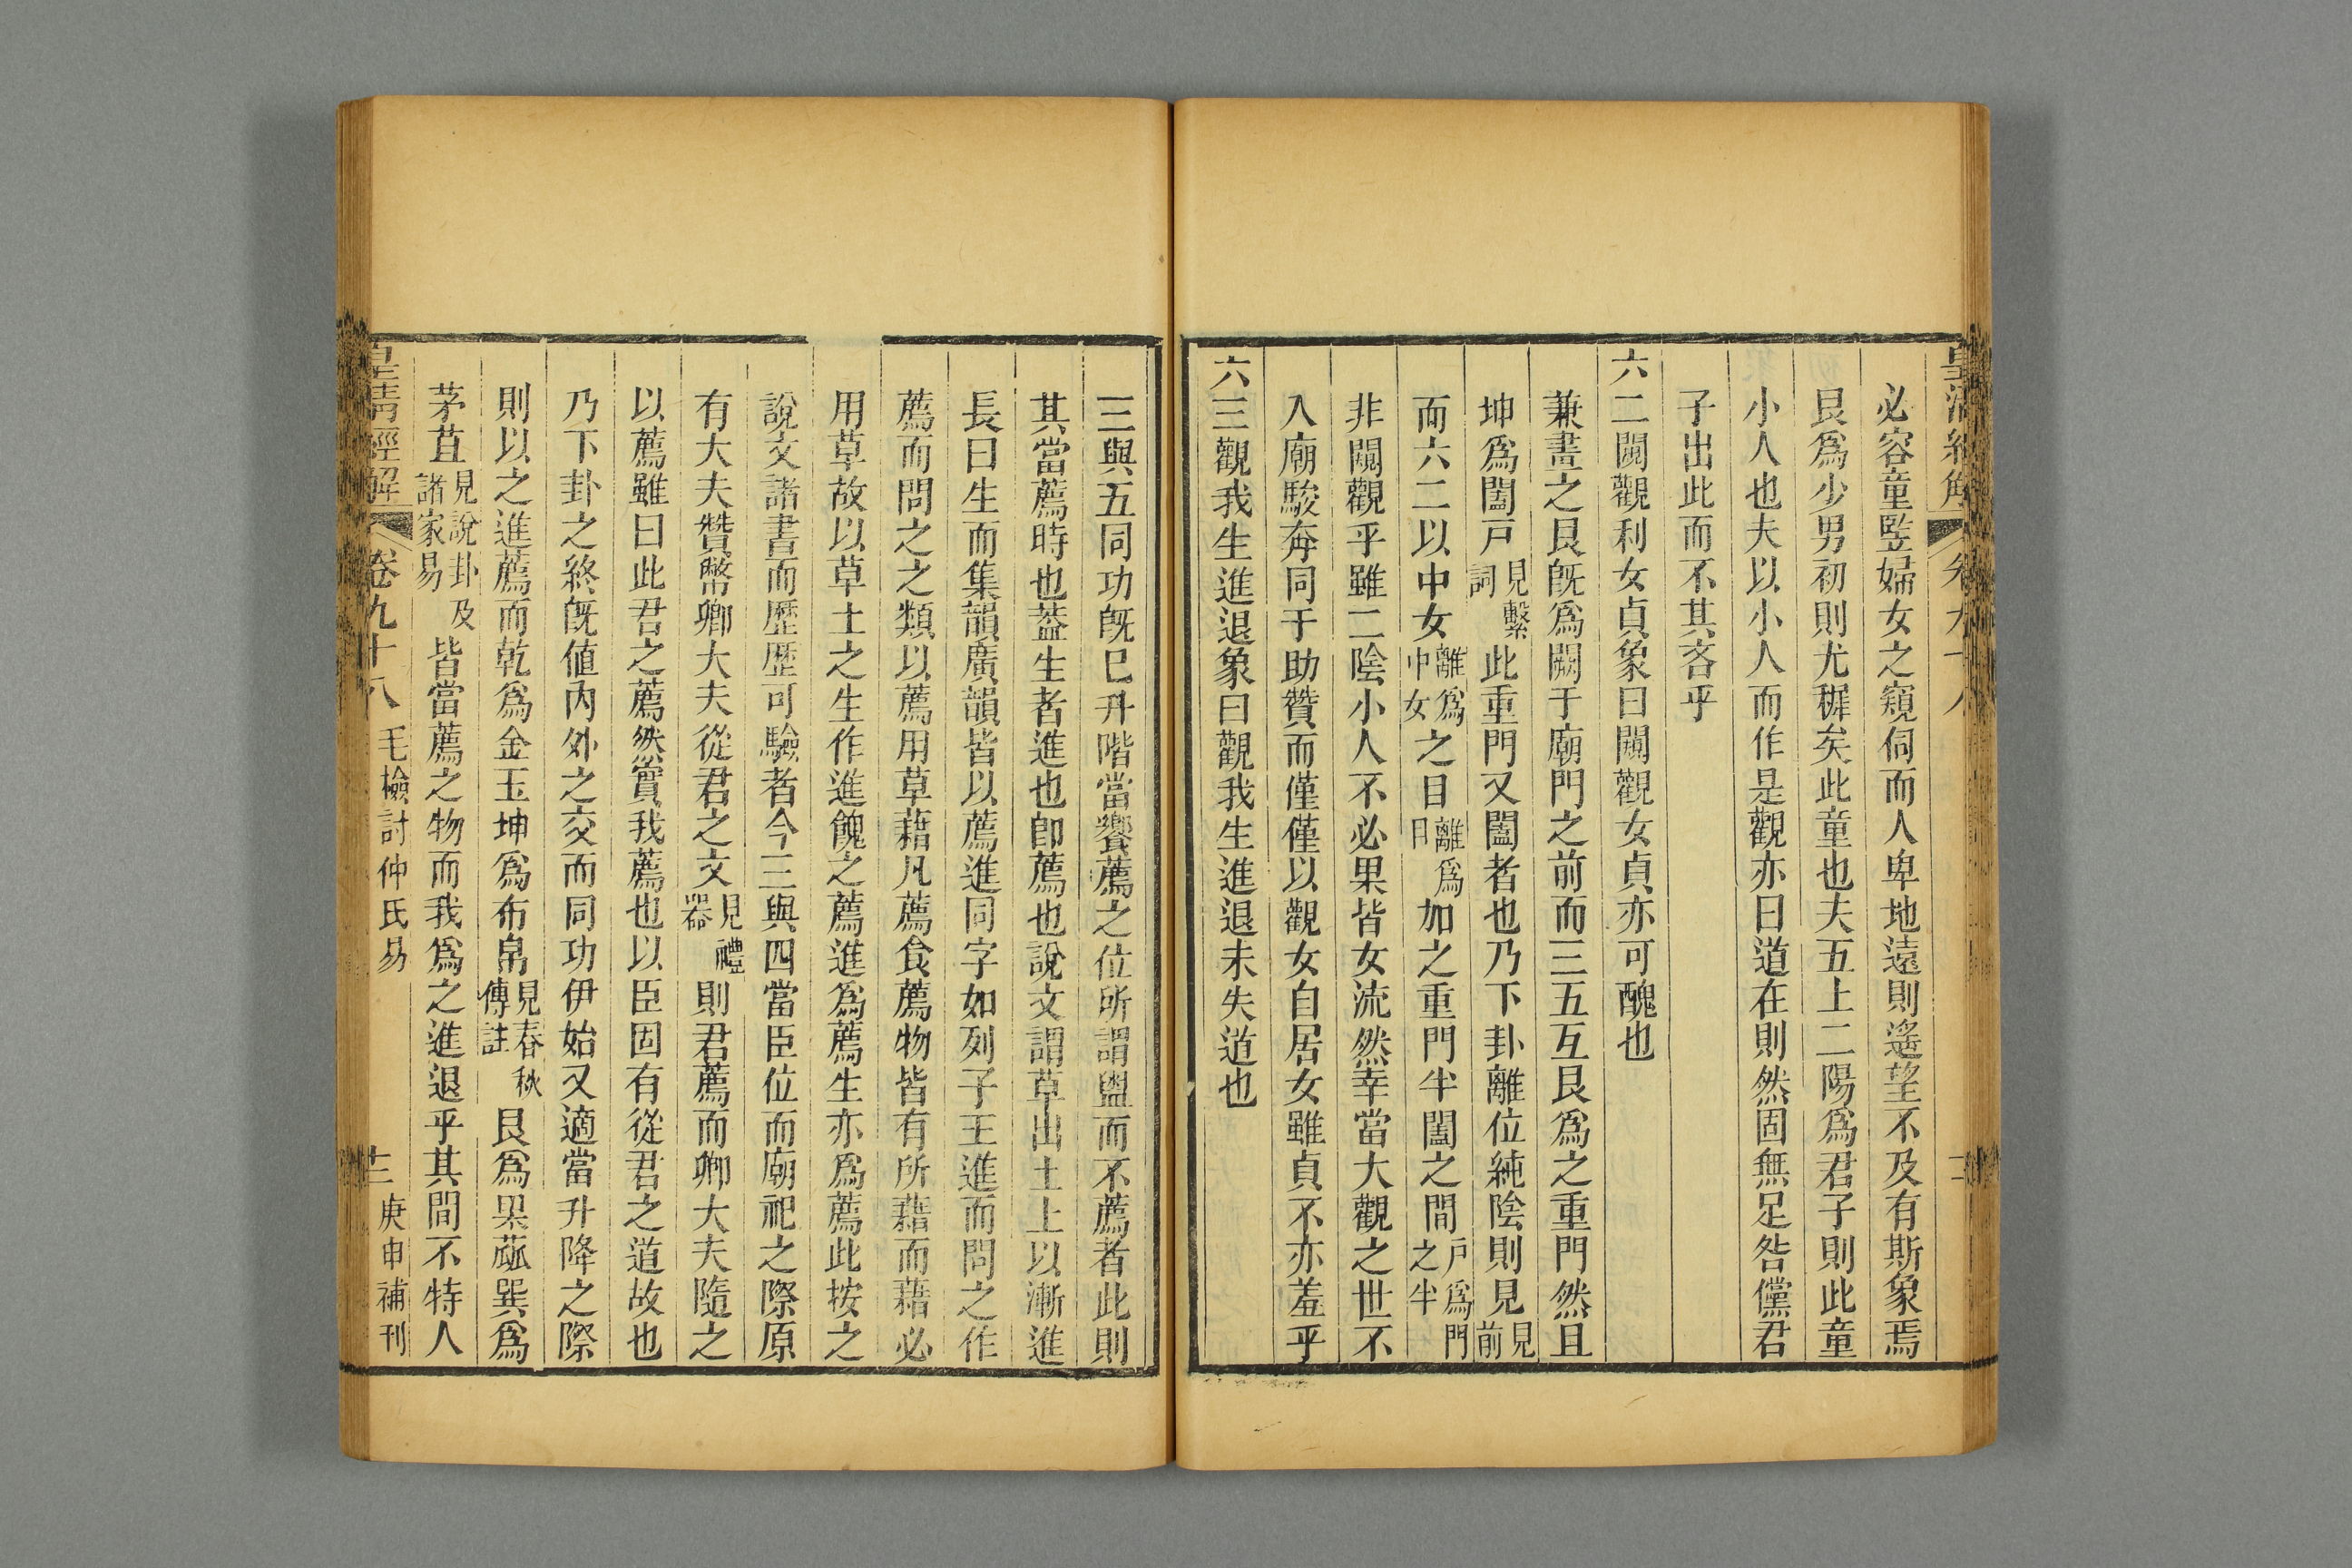 必容童豎婦女之窺伺而人卑地遠則遙望不及有斯象焉
艮爲少男初則尤穉矣此童也夫五上二陽爲君子則此童
小人也夫以小人而作是觀亦曰道在則然固無足咎儻君
子出此而不其吝乎
六二闚觀利女貞象曰闚觀女貞亦可醜也
兼畫之艮旣爲闕于廟門之前而三五互艮爲之重門然且
坤爲闔戸見繫詞此重門又闔者也乃下卦離位純陰則見見前
而六二以中女離爲中女之目離爲目加之重門半闔之間戸爲門之半
非闚觀乎雖二陰小人不必果皆女流然幸當大觀之世不
入廟駿奔同于助贊而僅僅以觀女自居女雖貞不亦羞乎
六三觀我生進退象曰觀我生進退未失道也
三與五同功旣巳升階當饗薦之位所謂盥而不薦者此則
其當薦時也葢生者進也卽薦也說文謂草出土上以漸進
長曰生而集韻廣韻皆以薦進同字如列子王進而問之作
薦而問之之類以薦用草藉凡薦食薦物皆有所藉而藉必
用草故以草土之生作進餽之薦進爲薦生亦爲薦此按之
說文諸書而歷歷可驗者今三與四當臣位而廟祀之際原
有大夫贊幣卿大夫從君之文見禮器則君薦而卿大夫隨之
以薦雖曰此君之薦然實我薦也以臣固有從君之道故也
乃下卦之終旣値內外之交而同功伊始又適當升降之際
則以之進薦而乾爲金玉坤爲布帛見春秋傳註艮爲果蓏巽爲
茅苴見說卦及諸家易皆當薦之物而我爲之進退乎其間不特人
皇淸經解 卷九十八 毛檢討仲氏易 十二 庚申補刊